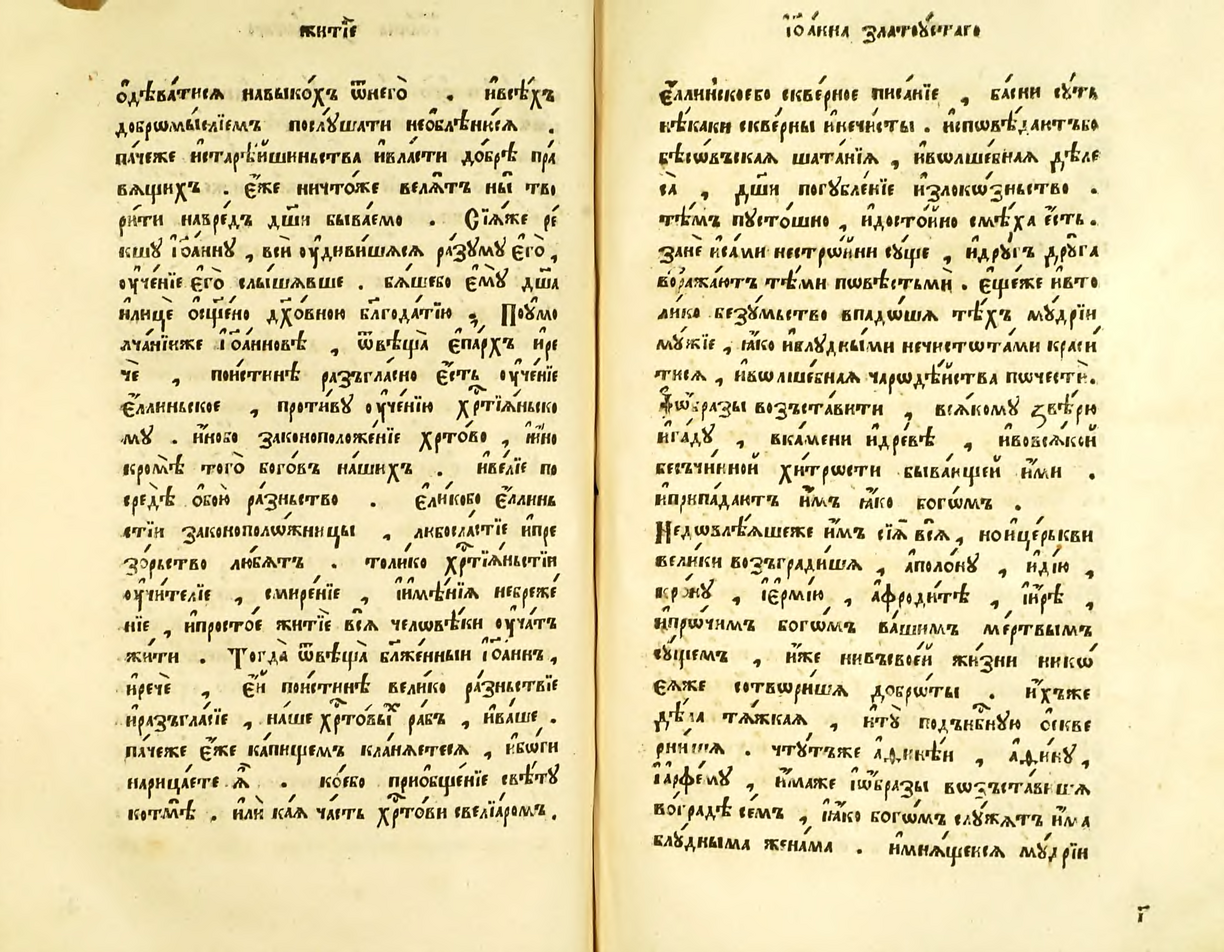 житїе
одѣва́тисѧ навыко́хъ ѿнего̀ . ивсѣ́хъ
добрѡмы́слїемъ послꙋ́шати неѡблѣни́сѧ .
па́чеже истарѣ́йшиньства ивла́сти до́брѣ пра́
вѧщихъ . є҆́же ничто́же велѧ́тъ ны̀ тво
ри́ти навре́дъ дш҃и быва́емо . Сїѧ́же ре́
кшꙋ і҆ѡа́ннꙋ , всѝ ᲂу҆диви́шасѧ ра́зꙋмꙋ є҆го̀ ,
ᲂу҆че́нїе є҆го̀ слы́шавше . бѧ́шебо є҆мꙋ̀ дш҃а
и́лище ѡсщ҃ено дх҃о́вною блгⷣа́тїю . Поꙋмо
лча́нїиже і҆ѡа́нновѣ , ѿвѣща̀ є҆па́рхъ ире
чѐ , пои́стинѣ разъгла́сно є҆́сть ᲂу҆че́нїе
є҆́ллиньское , проти́вꙋ ᲂу҆че́нїю хрⷭ҇тїѧ́ньско
мꙋ . и҆́нобо законоположе́нїе хрⷭ҇то́во , и҆́но
кро́мѣ того̀ бого́въ на́шихъ . ивеле́їе по
средѣ̀ ѻбою̀ ра́зньство . є҆ли́кобо є҆́ллинь
стїи законополо́жницы , любосла́стїе ипре
зо́рьство лю́бѧтъ . толи́ко хрⷭ҇тїѧ́ньстїи
ᲂу҆чи́телїе , смире́нїе , і҆имѣ́нїѧ небреже́
нїе , ипросто́е житїѐ всѧ̀ человѣ́ки ᲂу҆ча́тъ
жи́ти . Тогда̀ ѿвѣща̀ бл҃же́нныи і҆ѡа́ннъ ,
иречѐ , є҆́й пои́стинѣ вели́ко ра́зньствїе
иразъгла́сїе , на́ше хрⷭ҇то́выⷯ ра́бъ , ива́ше .
па́чеже є҆́же ка́пищемъ кла́нѧетесѧ , ибо́ги
нарица́ете ѧ҆̀ . ко́ебо приѻбще́нїе свѣ́тꙋ
котмѣ̀ . и҆лѝ ка́ѧ ча́сть хрⷭ҇то́ви свелїа́ромъ .
і҆ѡа́нна златоꙋстаго
є҆́ллинскоебо скве́рное писа́нїе , ба́сни сꙋ́ть
нѣ́каки скве́рны инечи́сты . исповѣ́даютъбо
бѣсѡ́въскаѧ шата́нїѧ , ивѡлше́бнаѧ дѣле
са̀ , дш҃и погꙋбле́нїе излоко́зньство .
тѣ́мъ пꙋсто́шно , идосто́йно смѣ́ха є҆́сть .
занѐ иса́ми нестро́йни сꙋ́ще , идрꙋ́гъ дрꙋ́га
воѻрꙋжа́ютъ тѣ́ми пѡ́вѣстьми . є҆ще́же ивто
ли́ко безꙋ́мьство впадо́ша тѣ́хъ мꙋ́дрїи
мꙋ́жїе , ꙗ҆́ко ивлꙋ́дными нечистота́ми краси́
тисѧ , ивѡлше́бнаѧ чародѣ́йства почестѝ .
іѡ҆́бразы возъста́вити , всѧ́комꙋ ѕвѣ́рю
ига́дꙋ , вка́мени идре́вѣ , ивовсѧ́кой
бесъчи́нной хи́трости быва́ющей и҆́ми .
иприпа́даютъ и҆̀мъ ꙗ҆́ко бого́мъ .
Недѡвлѣ́ѧшеже и҆̀мъ сїѧ̀ всѧ̀ , ноице́рькви
вели́ки возъгради́ша , аполо́нꙋ , иді́ю ,
кро́нꙋ , і҆є́рмїю , афроди́тѣ , іи́рѣ ,
ипро́чимъ бого́мъ ва́шимъ ме́ртвымъ
сꙋ́щемъ , и҆́же нивъсвое́й жи́зни нико
є҆ѧ́же сотвори́ша добро́ты . и҆́хъже
дѣла̀ тѧ́жкаѧ , итꙋ̀ подънб҃ную ѻскве
рни́ша . чтꙋ́тъже аѳинѣ́и , аѳи́нꙋ ,
і҆арфе́мꙋ , и҆́маже іѡ҆́бразы возъста́виша
вогра́дѣ се́мъ , иꙗ҆́ко бого́мъ слꙋ́жатъ и҆́ма
блꙋ́дныма жена́ма . имнѧ́щеисѧ мꙋ́дрїи
г҃